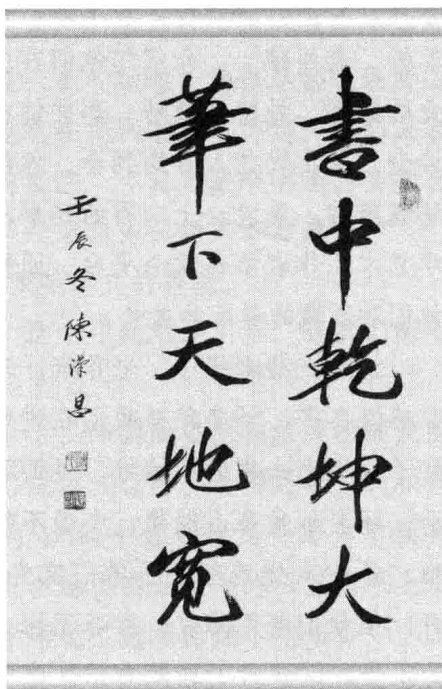 書中乾坤大
筆下天地寬
壬辰冬陳濚昌